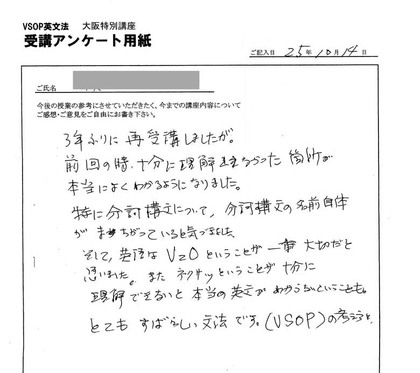 VSOP英文法 大阪特別講座
受講アンケート用紙
ご記入日 25年10月14日
ご氏名
今後の授業の参考にさせていただきたく、今までの講座内容について
ご感想・ご意見をご自由にお書き下さい。
3年ぶりに再受講しましたが。
前回の時、十分に理解出来なかった箇所が
本当によくわかるようになりました。
特に分詞構文について、分詞構文の名前自体
がまちがっていると気づきました。
そして、英語はV≧0ということが一番大切だと
思いました。また ネクサスということが十分に
理解できないと本当の英文がわからないということも。
とてもすばらしい文法です。(VSOP)の考え方を